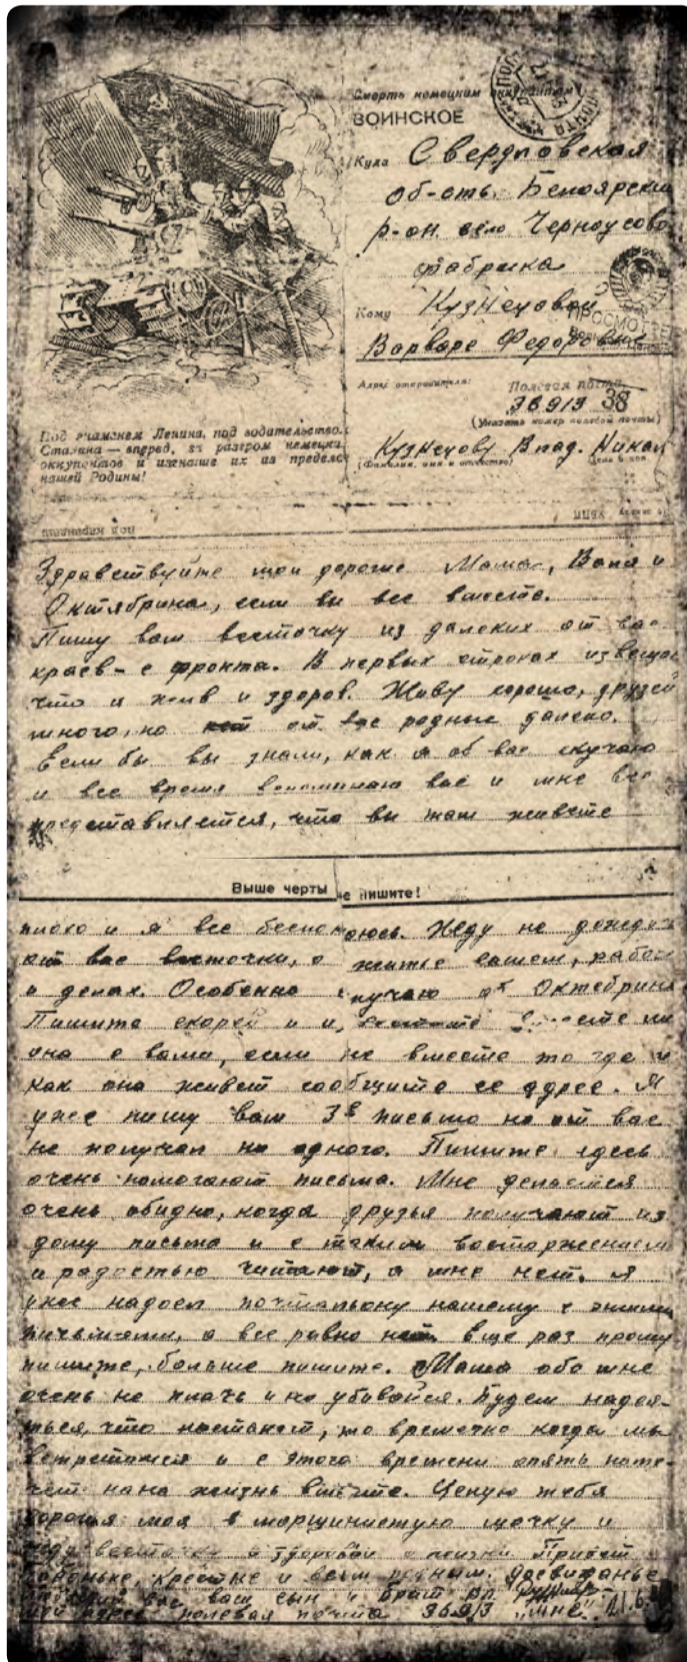 Смерть немецким оккупантам!
ВОИНСКОЕ
Куда Свердловская
об-сть. Белоярский
р-он село Черноусово
фабрика
Кому Кузнецовой
ПРОСМОТРЕНО
Варваре Федоровне
Адрес отправителя: Полевая почта
36913 38
(Указать номер полевой почты)
Кузнецову Влад. Никол
(Фамилия, имя и отчество)
Под знаменем Ленина, под водительством
Сталина — вперед, за разгром немецких
оккупантов и изгнание их из пределов
нашей Родины!
Здравствуйте мои дорогие Мама, Ваня и
Октябрина, если вы все вместе.
Пишу вам весточку из далеких от вас
краев – с фронта. В первых строках извещаю
что я жив и здоров. Живу хорошо, друзей
много, но от вас родные далеко.
Если бы вы знали, как я об вас скучаю
и все время вспоминаю вас и мне все
представляется, что вы там живете
Выше черты не пишите!
плохо и я все беспокоюсь. Жду не дождусь
от вас весточки, о житье вашем, работе
и делах. Особенно скучаю об Октябрине
Пишите скорей и вместе ли
она с вами, если не вместе то где и
как она живет сообщите ее адрес. Я
уже пишу вам 3е письмо но от вас
не получал ни одного. Пишите здесь
очень помогают письма. Мне делается
очень обидно, когда друзья получают из
дому письма и с таким восторжением
и радостью читают, а мне нет. Я
уже надоел почтальону нашему с этими
письмами, а все равно нет. Еще раз прошу
пишите, больше пишите. Мама обо мне
очень не плачь и не убивайся. Будем надея-
ться, что настанет, то времечко когда мы
встретимся и с этого времени опять
жизнь вместе. Целую тебя
хорошая моя в морщинистую щечку и
жду весточки о здоровьи о жизни. Привет
крестне и всем родным. досвиданье
вас ваш сын и брат
мой адрес полевая почта 36913 "мне". 21.6.